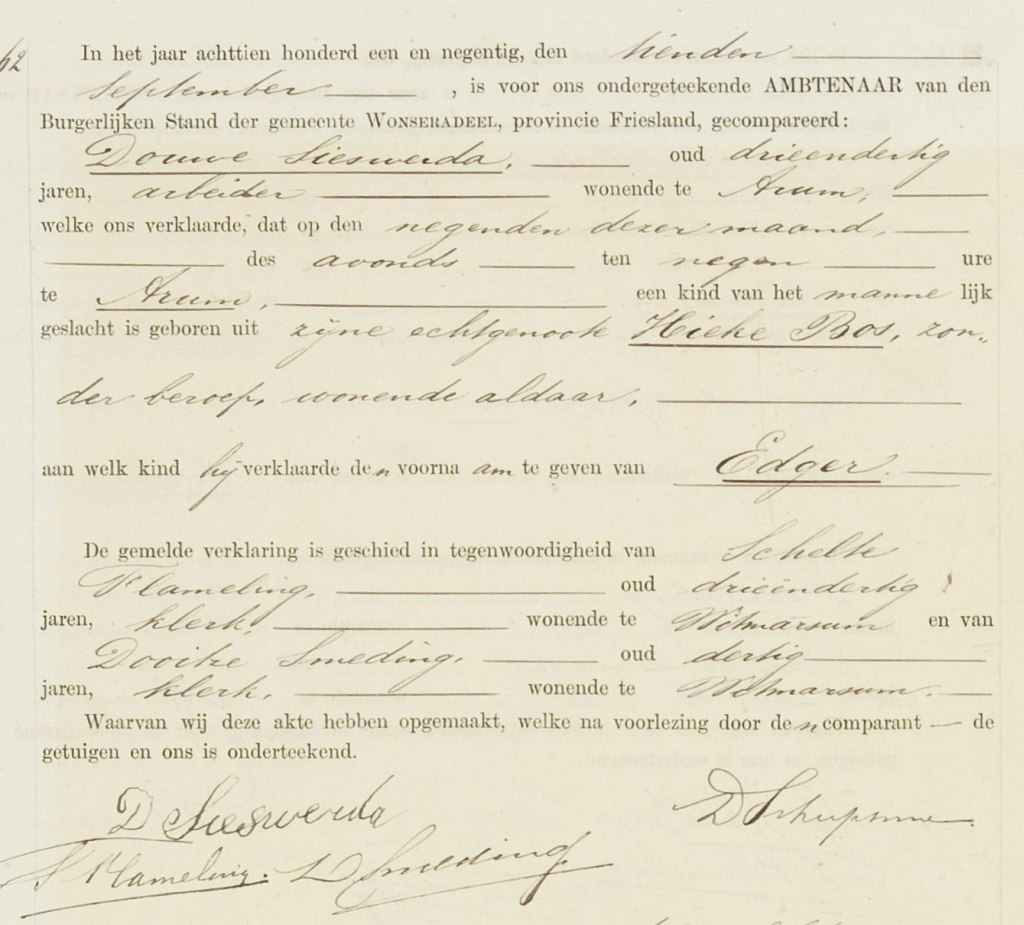 62
In het jaar achttien honderd een en negentig, den tienden
September, is voor ons ondergeteekende AMBTENAAR van den
Burgerlijken Stand der gemeente WONSERADEEL, provincie Friesland, gecompareerd:
Douwe Sieswerda, oud drieendertig
jaren, arbeider wonende te Arum,
welke ons verklaarde, dat op den negenden dezer maand,
des avonds ten negen ure
te Arum, een kind van het manne lijk
geslacht is geboren uit zijne echtgenoote Hieke Bos, zon„
der beroep, wonende aldaar,
aan welk kind hij verklaarde den voorna am te geven van Edger.
De gemelde verklaring is geschied in tegenwoordigheid van Schelte
Flameling, oud drieëndertig
jaren, klerk, wonende te Witmarsum en van
Dooitze Smeding, oud dertig
jaren, klerk, wonende te Witmarsum.
Waarvan wij deze akte hebben opgemaakt, welke na voorlezing door den comparant — de
getuigen en ons is onderteekend.
D Sieswerda
S Flameling. D Smeding